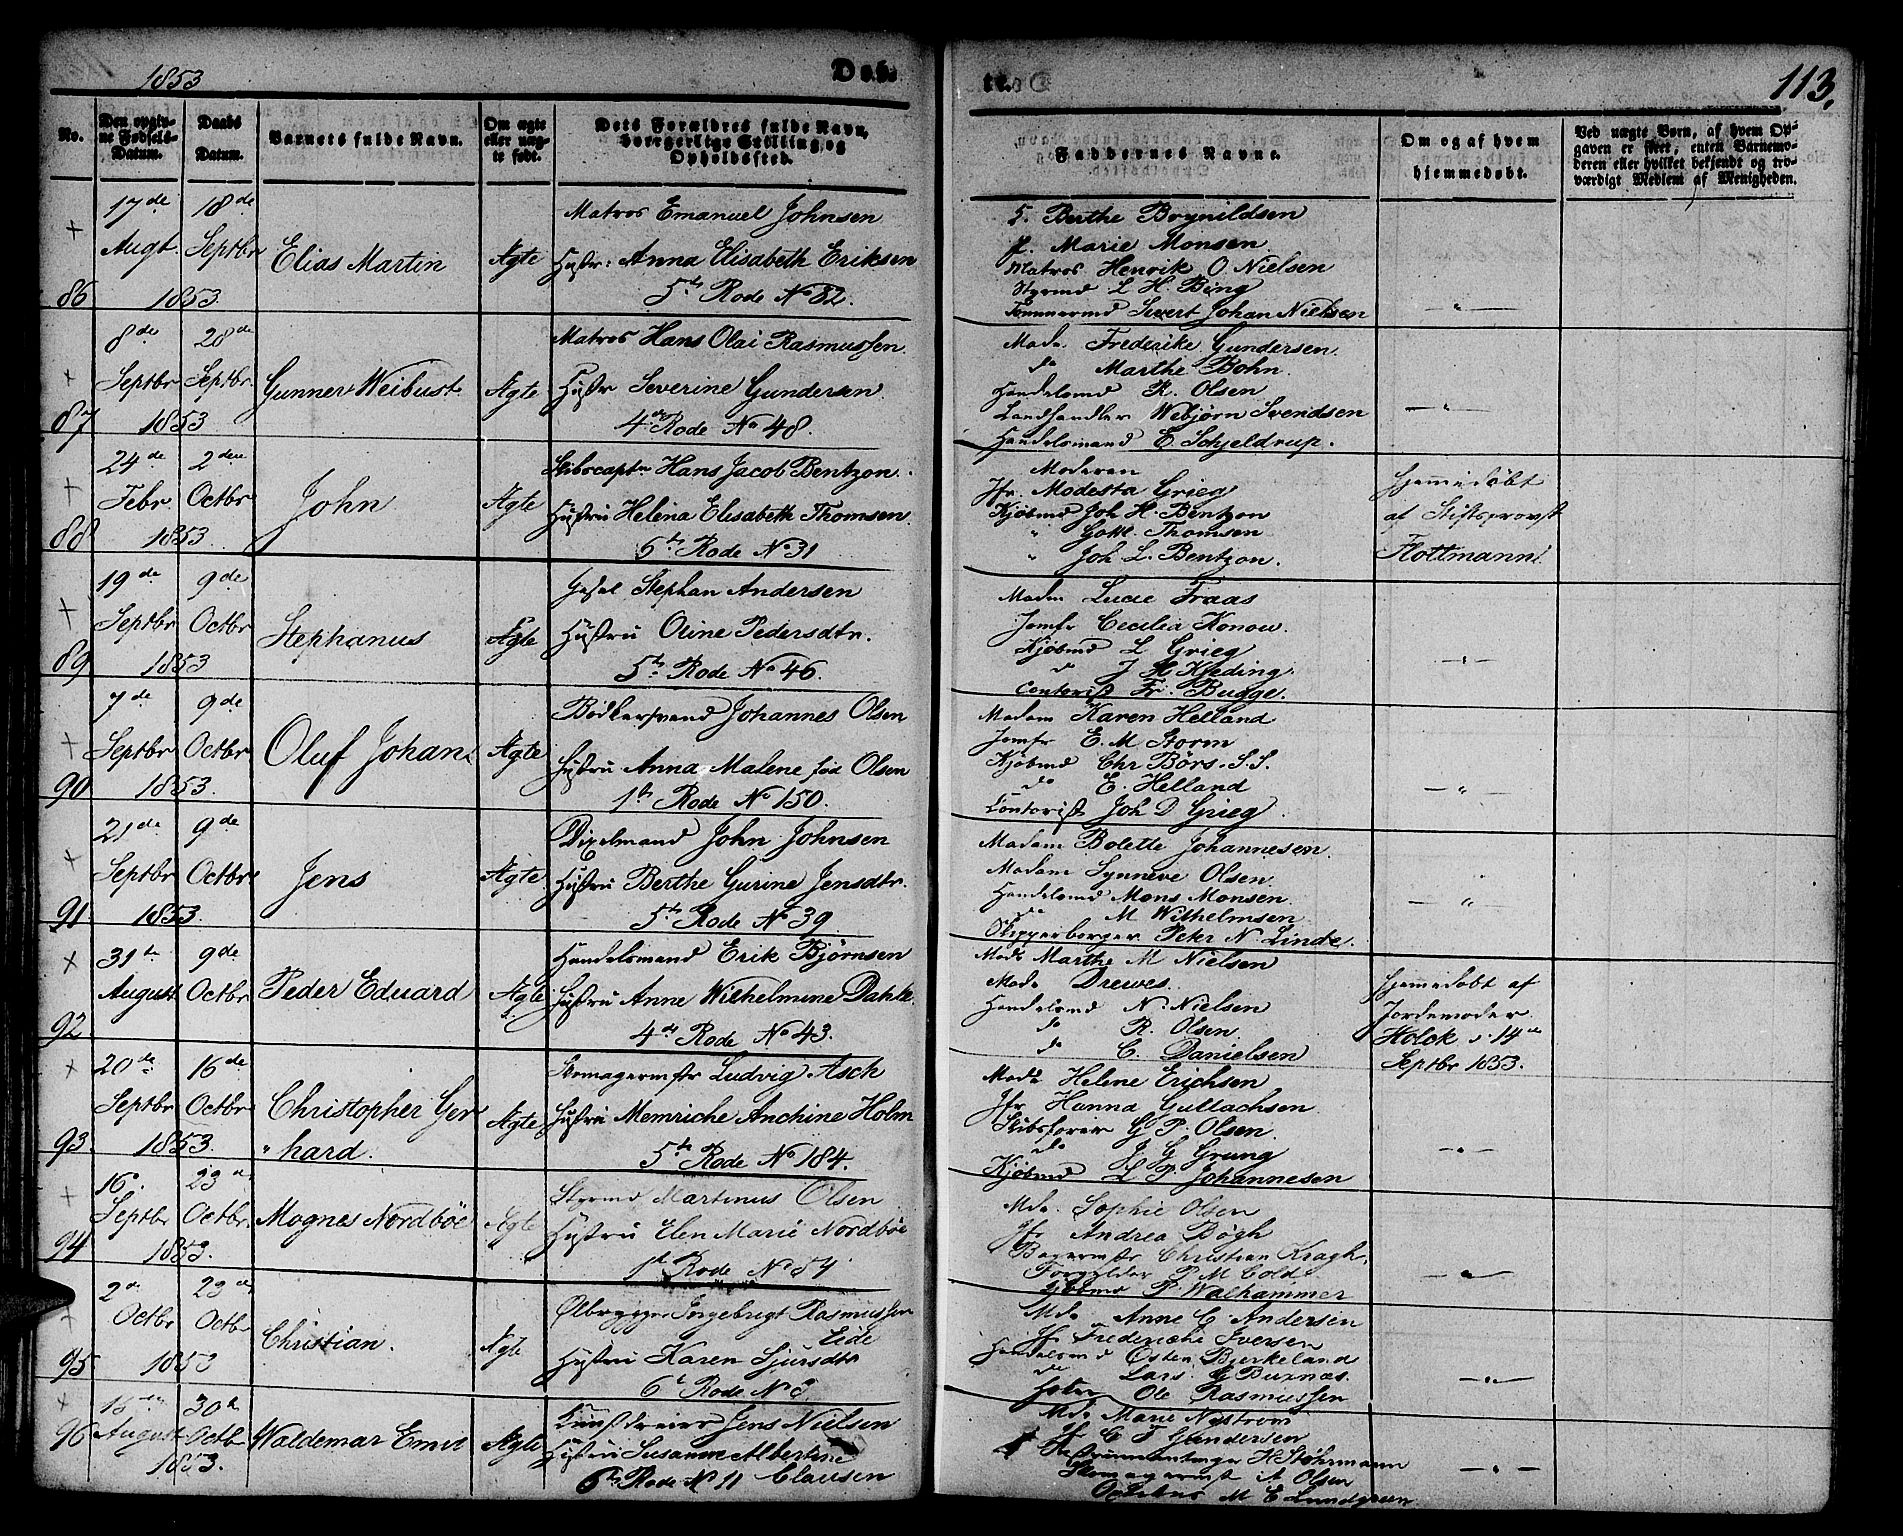 1853
Døb
te.
113.
No.
Den opgiv-
ne Fødsels-
Datum.
Daabs
Datum.
Barnets fulde Navn.
Om ægte
eller uæg-
te født.
Dets Forældres fulde Navn,
borgerlige Stilling og
Opholdssted.
Faddernes Navne.
Om og af hvem
hjemmedøbt.
Ved uægte Børn, af hvem Op-
gaven er skeet, enten Barnemo-
deren eller hvilket bekjendt og tro-
værdigt Medlem af Menigheden.
86
17de Augt. 1853
18de Septbr
Elias Martin
Ægte
Matros Emanuel Johnsen
Hustr: Anna Elisabeth Eriksen
5te Rode No 82.
Berthe Brynildsen
Marie Monsen
Matros Henrik O Nielsen
Styrmd L H. Bing
Tømmermd Sivert Johan Nielsen
87
8de Septbr 1853
28de Septbr.
Gunner Weibust
Ægte
Matros Hans Olai Rasmussen
Hustr Severine Gundersen
4de Rode No 48.
Mada. Frederike Gundersen.
do Marthe Bohn.
Handelsmd R. Olsen
Landhandler Webjørn Svendsen
Handelsmand E. Schjeldrup.
88
24de Febr. 1853.
2den Octbr
John
Ægte
Skibscaptn Hans Jacob Bentzon.
Hustru Helena Elisabeth Thomsen
6te Rode No 31
Moderen
Jfr. Modesta Grieg
Kjøbmd Joh H. Bentzon
" Gottl. Thomsen
" Joh L. Bentzon.
Hjemmedøbt
af Stiftsprovst
Flottmann
89
19de Septbr 1853
9de Octbr
Stephanus
Ægte
Stephan Andersen
Hustru Oline Pedersdtr.
5te Rode No 46.
Madm Lucie Fraas
Jomfr Cecilia Konow.
Kjøbmd L Grieg
do J H Kieding.
Contorist Fr. Bugge.
90
7de Septbr 1853.
9de Octbr
Oluf Johan
Ægte
Bødkersvend Johannes Olsen
Hustru Anna Malene fød Olsen
1ste Rode No 150.
Madam Karen Helland
Jomfr E. M Storm
Kjøbmd Chr Børs. S.S.
do E. Helland
Contorist Joh D Grieg
91
21de Septbr 1853.
9de Octbr
Jens
Ægte
Dixelmand John Johnsen
Hustru Berthe Gurine Jensdtr.
5te Rode No 39
Madam Bolette Johannesen.
Madam Synneve Olsen
Handelsmd Mons Monsen.
do M Wilhelmsen
Skipperborger Peter N. Linde.
92
31te August
9de Octbr
Peder Eduard
Ægte
Handelsmand Erik Bjørnsen
Hustru Anne Wilhelmine Dahle.
4de Rode No 43.
Mada Marthe M Nielsen
Mada Drewes.
Handelsmd N. Nielsen
do R. Olsen
do C. Danielsen
Hjemmedøbt af
Jordemoder
Holck d. 14de
Septbr 1853.
93
20de Septbr 1853.
16de Octbr
Christopher Ger
" hard.
Ægte
Skomagermstr Ludvig Asch
Hustru Memriche Anchine Holm
5te Rode No 184.
Mada Helene Erichsen
Jfr Hanna Gullachsen
Skibsfører G P. Olsen.
do J G Grung
Kjøbmd L P. Johannesen
94
16. Septbr 1853.
23de Octbr.
Mognes Nordbøe
Ægte
Styrmd Martinus Olsen
Hustru Elen Marie Nordbøe
1ste Rode No 84
Mda. Sophie Olsen
Jfr Andrea Bøgh
Bagermstr Christian Kragh.
Forgylder P M Cold
Kjøbmd P Walhammer
95
2de Octbr 1853
23de Octbr
Christian.
Ægte
Ølbrygger Ingebrigt Rasmussen
Eide
Hustru Karen Sjursdtr
6te Rode No 8
Mda Anne C Andersen
Jfr Frederiche Iversen
Handelsmd Østen Bjerkeland
do Lars G Burnæs.
Ole Rasmussen
96
August 1853.
30te Octb
Waldemar Emil
Ægte
Jens Nielsen
Hustru Susanne Albertine
6te Rode No 11 Clausen
Mda Marie Nystrøm
Jfr C F Gundersen
Instrumentmager H Støhrmann
Skomagermst A Olsen
M E Lundgreen